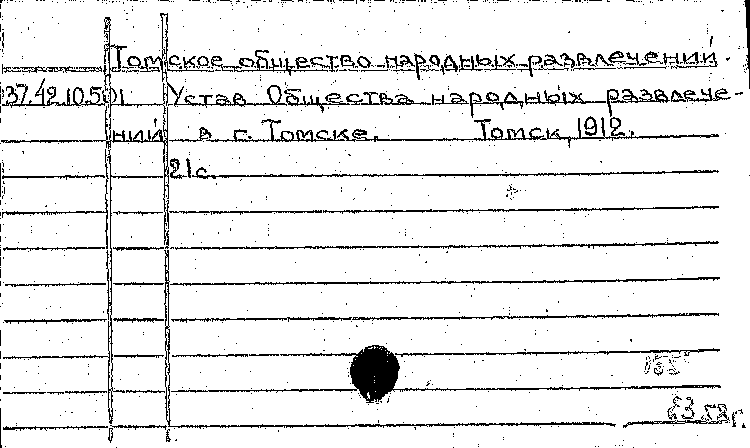 Томское общество народных развлечений.
37.42.10.501 Устав Общества народных развлече-
ний в г. Томске. Томск, 1912.
21с.
155